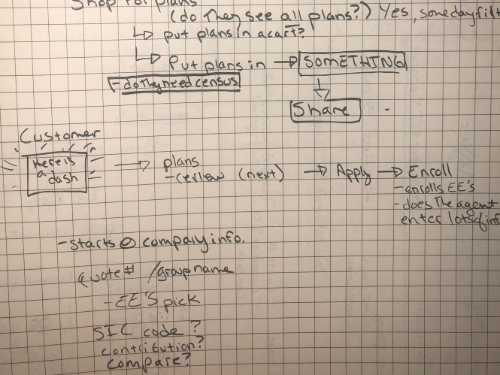 Shop for plans
(do they see all plans?) Yes, someday filt
↳ put plans in a cart?
↳ Put plans in → SOMETHING
- do they need census
Share -
Customer
Here is a dash → plans → Apply → Enroll
- review (next)
- enrolls EE's
- does the agent
enter lots of inf
- starts @ company info.
quote # / group name
- EE'S pick
SIC code?
contribution?
compare?